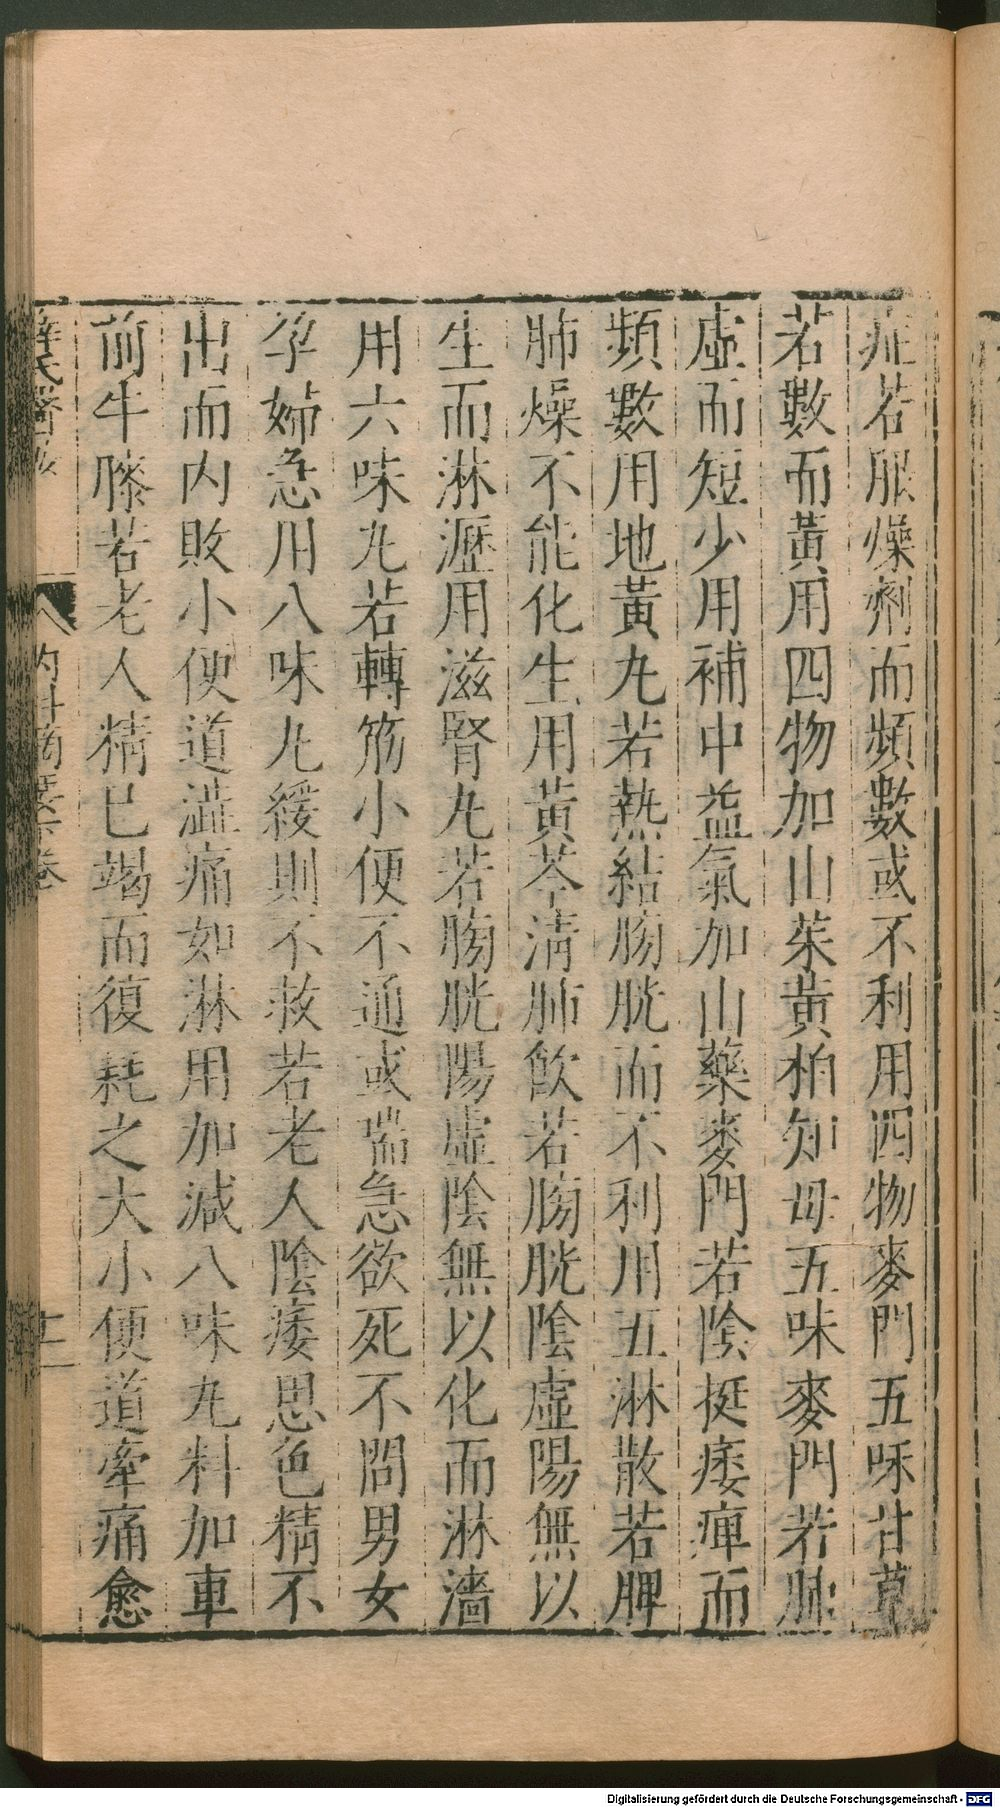 症若服燥劑而頻數或不利用四物麥門五味甘草
若數而黃用四物加山茱黃柏知母五味麥門若肺
虛而短少用補中益氣加山藥麥門若陰挺痿痺而
頻數用地黃丸若熱結膀胱而不利用五淋散若脾
肺燥不能化生用黃芩清肺飲若膀胱陰虛陽無以
生而淋瀝用滋腎丸若膀胱陽虛陰無以化而淋濇
用六味丸若轉筋小便不通或喘急欲死不問男女
孕婦急用八味丸緩則不救若老人陰痿思色精不
出而内敗小便道澁痛如淋用加減八味丸料加車
前牛膝若老人精已竭而復耗之大小便道牽痛愈
薛氏醫案 内科摘要下卷 十一
Digitalisierung gefördert durch die Deutsche Forschungsgemeinschaft - DFG